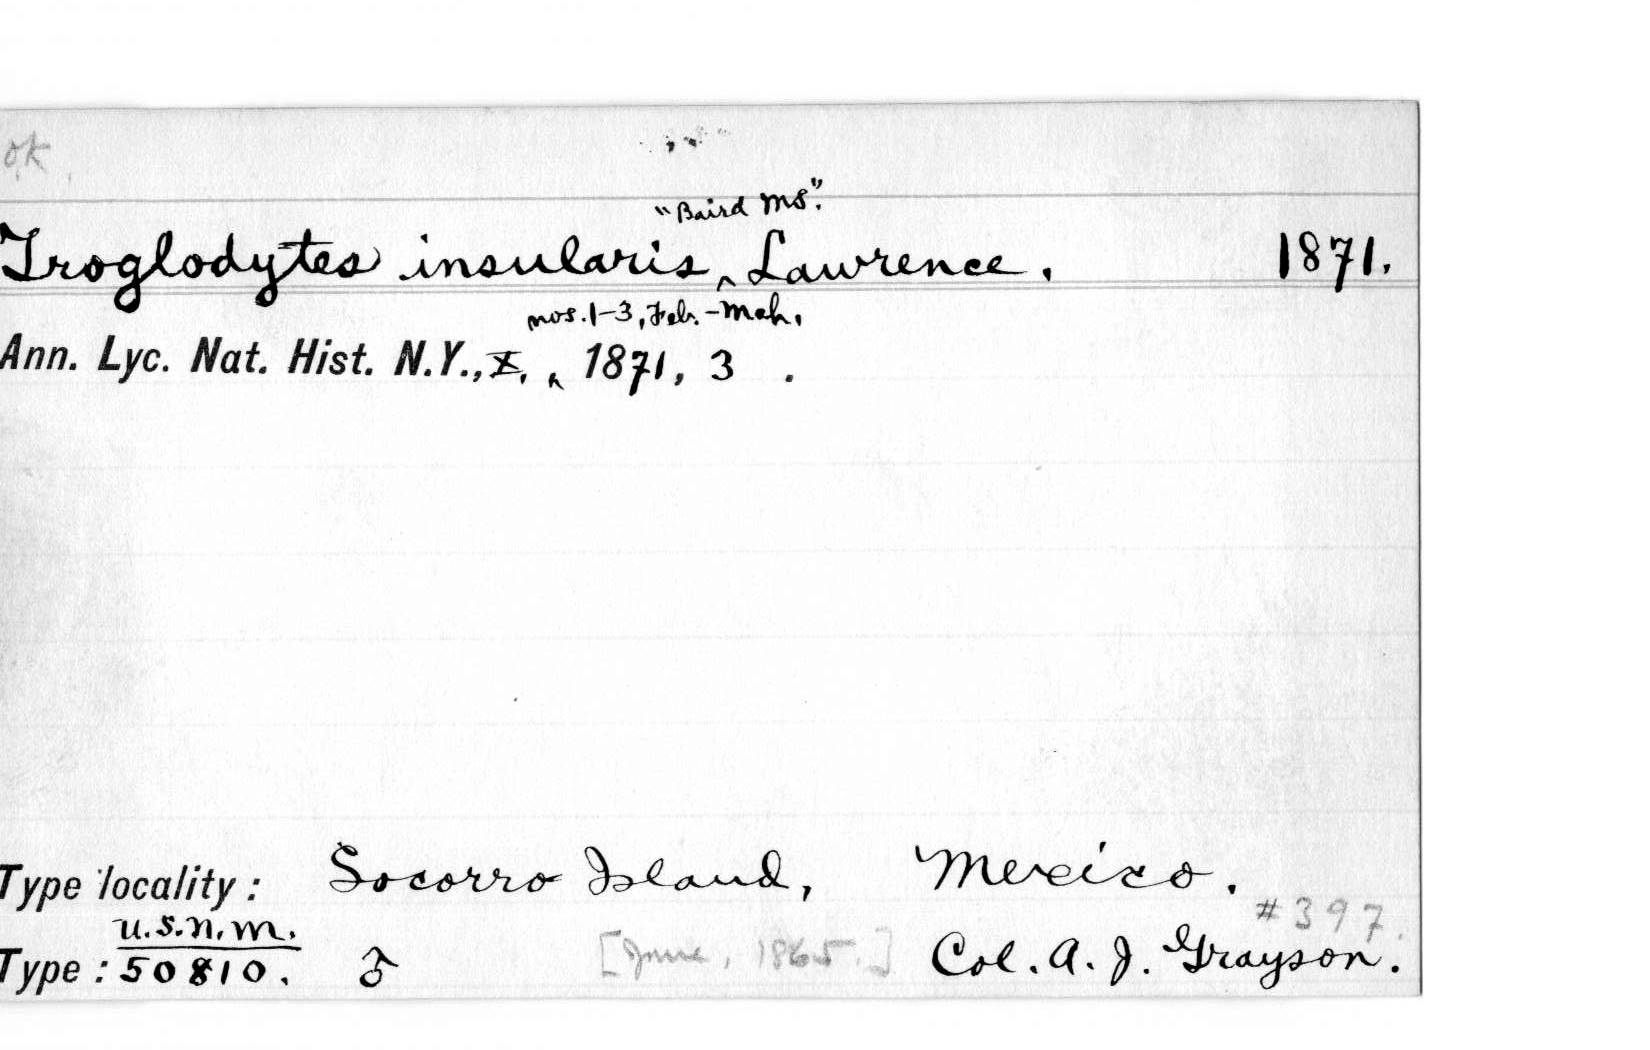 ok
"Baird MS."
Troglodytes insularis ‸ Lawrence. 1871.
nos. 1-3, Feb.-Mch.
Ann. Lyc. Nat. Hist. N.Y., X, ‸ 1871, 3 .
Type locality: Socorro Island, Mexico.
#397.
U.S.N.M.
Type: 50810. ♂ [June, 1865.] Col. A. J. Grayson.